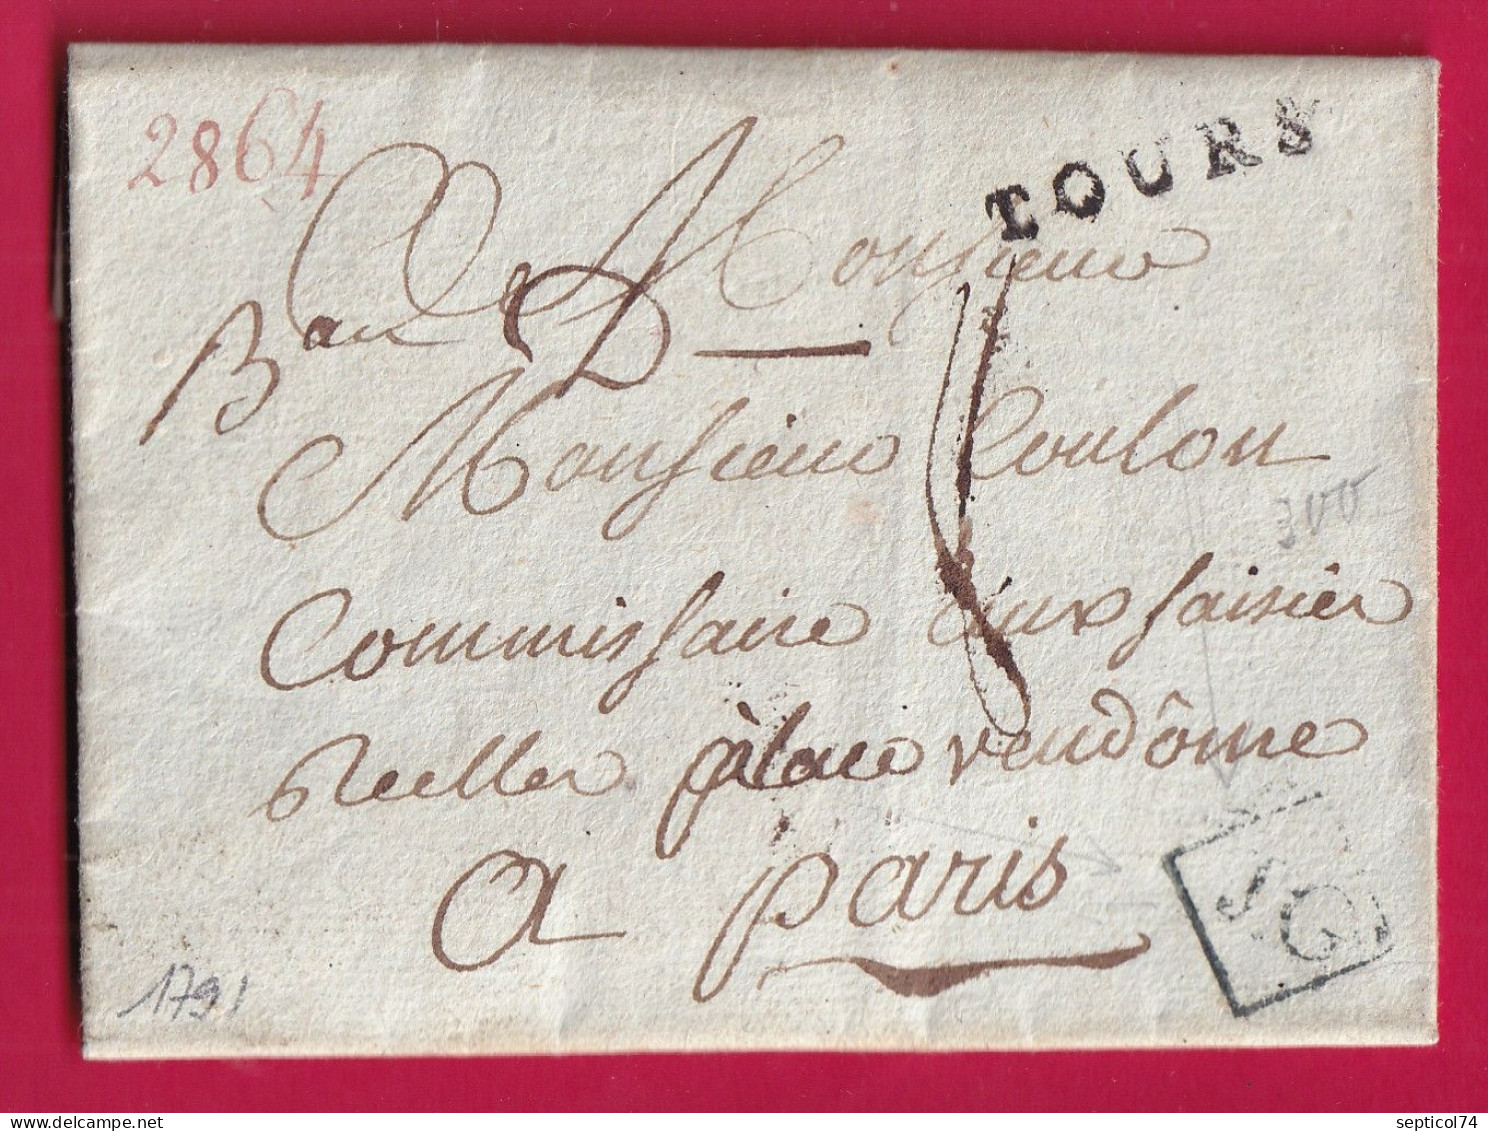 2864
TOURS
A Monsieur
Monsieur Coulon
300
Commissaire aux saisies
Reelles place vendôme
A paris
SG
1791
septicol74